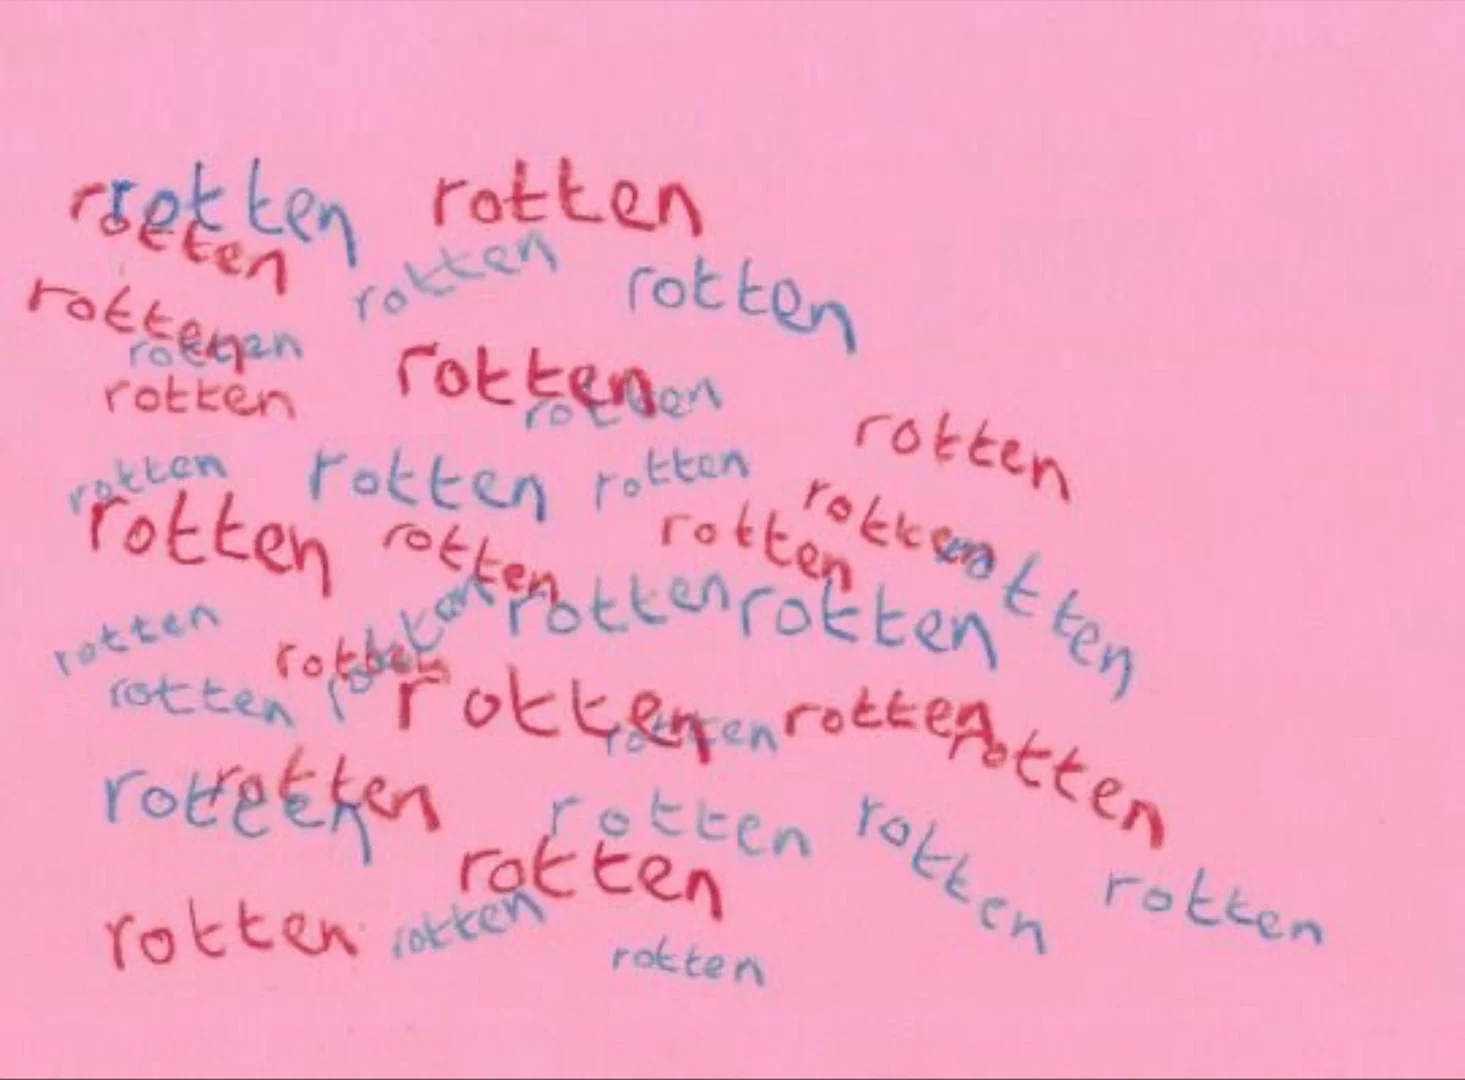 rotten rotten
rotten
rotten rotten
rotten
rotten
rotten rotten
rotten rotten
rotten
rotten rotten rotten
rotten rotten rotten rotten
rotten
rotten rotten rotten
rotten rotten rotten
rotten rotten rotten
rotten rotten
rotten rotten rotten
rotten
rotten rotten rotten
rotten